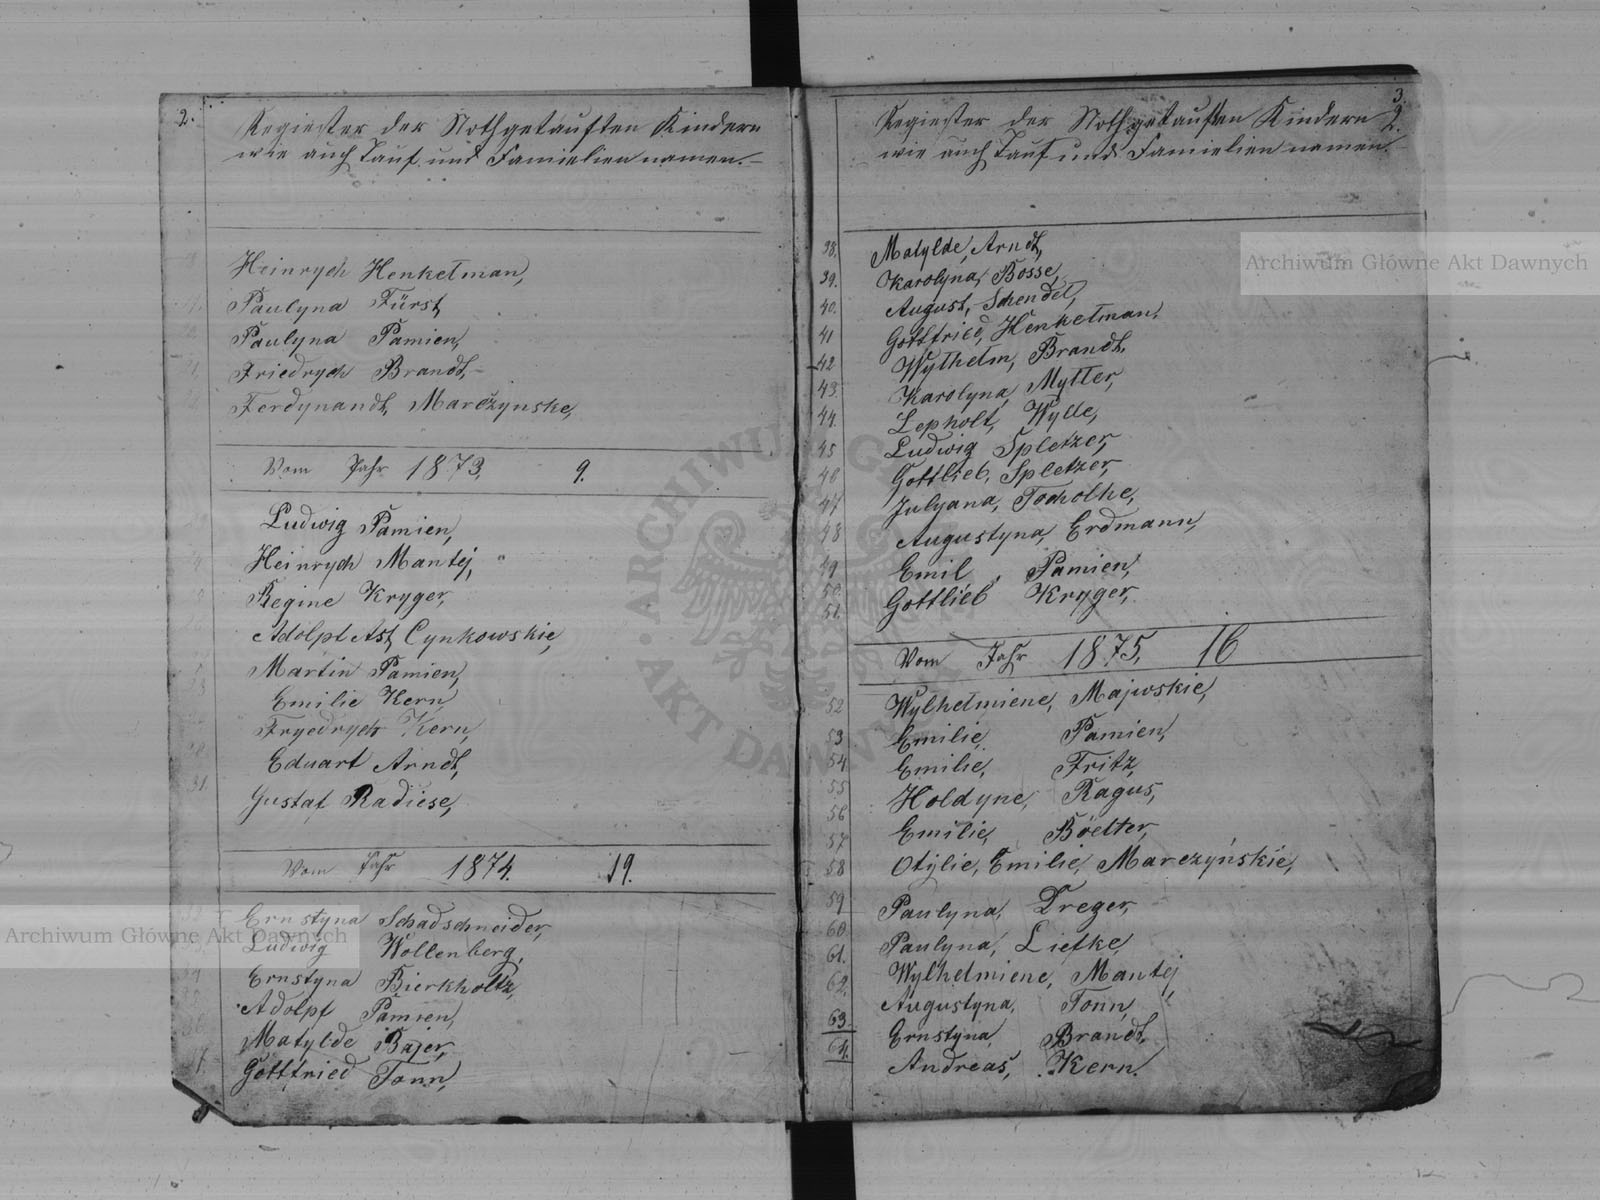 2.
Regiester der Nothgetauften Kindern
wie auch Tauf und Famielien namen.
Heinrych Henkelman,
Paulyna Fürst,
Paulyna Pamien,
Friedrych Brandt,
Ferdynandt, Marczynske,
Vom Jahr 1873, 9.
Ludwig Pamien,
Heinrych Mantej,
Regine Kryger,
Adolpt Ast, Cynkowskie,
Martin Pamien,
Emilie Kern,
Fryedrych Kern,
Eduart Arndt,
31.
Gustaf Radiese,
Vom Jahr 1874. 19.
Ernstyna Schadschneider,
Ludwig Wollenberg,
Ernstyna Bierkholtz,
Adolpf Pamien,
Matylde Bajer,
Gottfried Tonn,
3.
2.
Regiester der Nothgetauften Kindern
wie auch Tauf und Famielien namen.
38. Matylde, Arndt,
39. Karolyna, Bosse,
40. August, Schendel,
41 Gottfried, Henkelman,
42 Wylhelm, Brandt,
43. Karolyna, Myller,
44. Lepholt, Wylle,
45 Ludwig Spletzer,
46 Gottlieb, Spletzer,
47 Julyana, Tocholke,
48 Augustyna, Erdmann,
49 Emil, Pamien,
50. Gottlieb Kryger,
51.
Vom Jahr 1875, 16
52 Wylhelmiene, Majwskie,
53 Emilie, Pamien,
54 Emilie, Fritz,
55 Holdyne, Ragus,
56 Emilie, Böelter,
57
58 Otylie, Emilie, Marczyńskie,
59 Paulyna, Dreger,
60. Paulyna, Liefke,
61. Wylhelmiene, Mantej,
62. Augustyna, Tonn,
63. Ernstyna, Brandt,
64. Andreas, Kern.
Archiwum Główne Akt Dawnych
Archiwum Główne Akt Dawnych